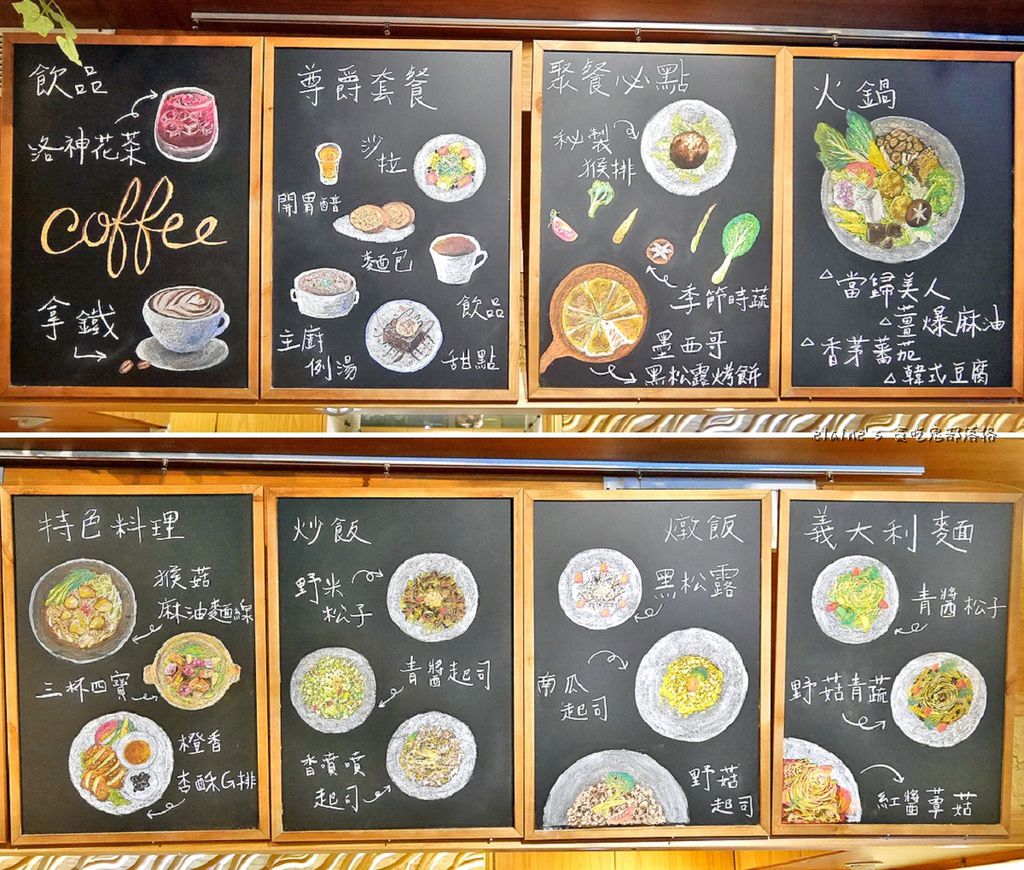 飲品
洛神花茶
coffee
拿鐵
尊爵套餐
沙
拉
開胃醋
麵包
飲品
主廚
例湯
甜點
聚餐必點
秘製
猴排
季節時蔬
墨西哥
黑松露烤餅
火鍋
當歸美人
薑爆麻油
香茅蕃茄
韓式豆腐
elaine's 貪吃鬼部落格
特色料理
猴菇
麻油麵線
三杯四寶
橙香
杏酥G排
炒飯
野米
松子
青醬起司
香噴噴
起司
燉飯
黑松露
南瓜
起司
野菇
起司
義大利麵
青醬松子
野菇青蔬
紅醬蕈菇